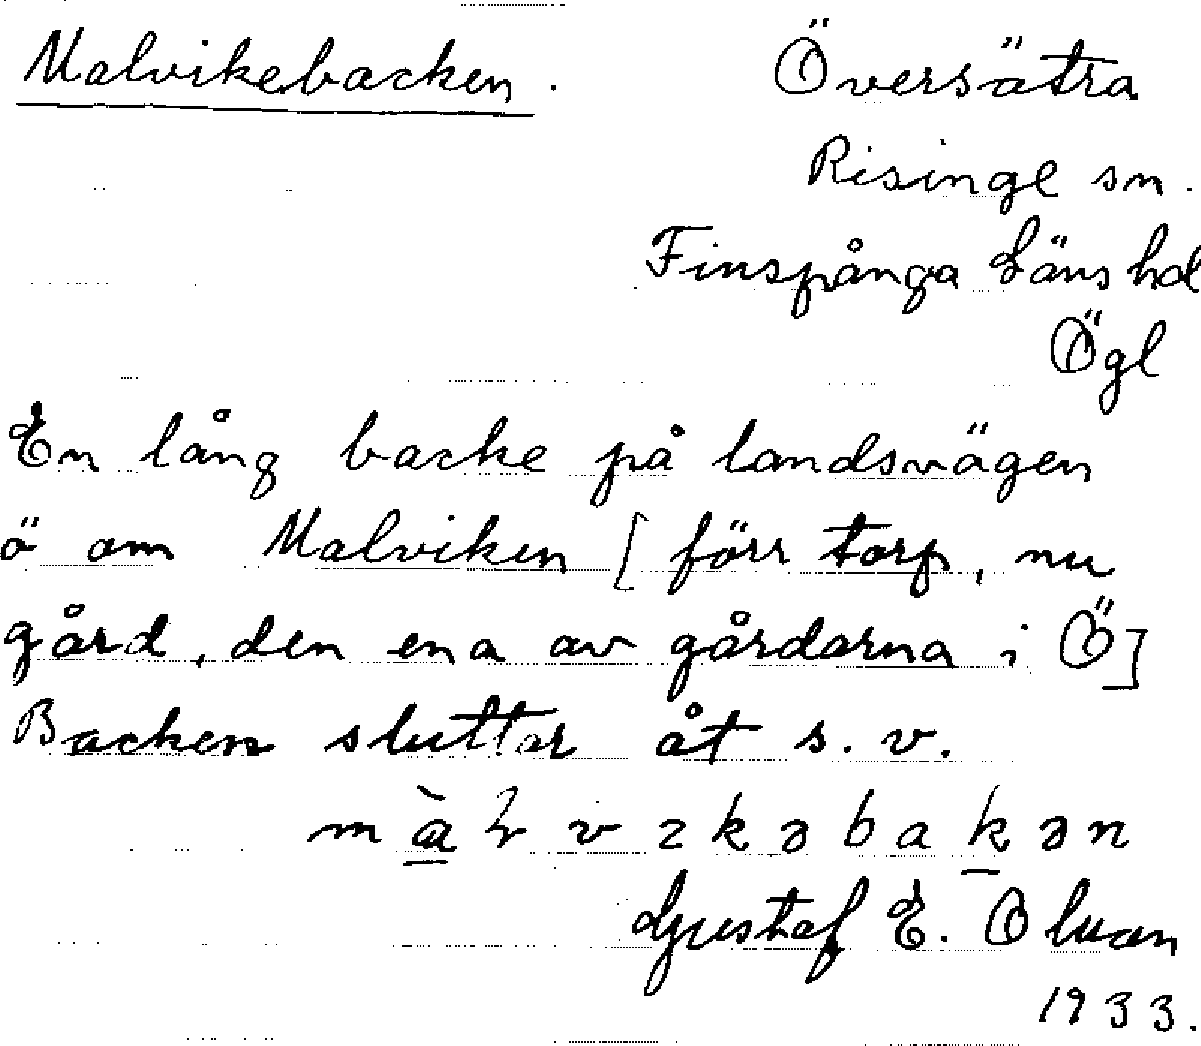 Malvikebacken. Översätra
Risinge sn.
Finspånga läns hd
Ögl
En lång backe på landsvägen
ö om Malviken [förr torp, nu
gård, den ena av gårdarna i Ö]
Backen sluttar åt s.v.
Gustaf E. Oluan
1933.